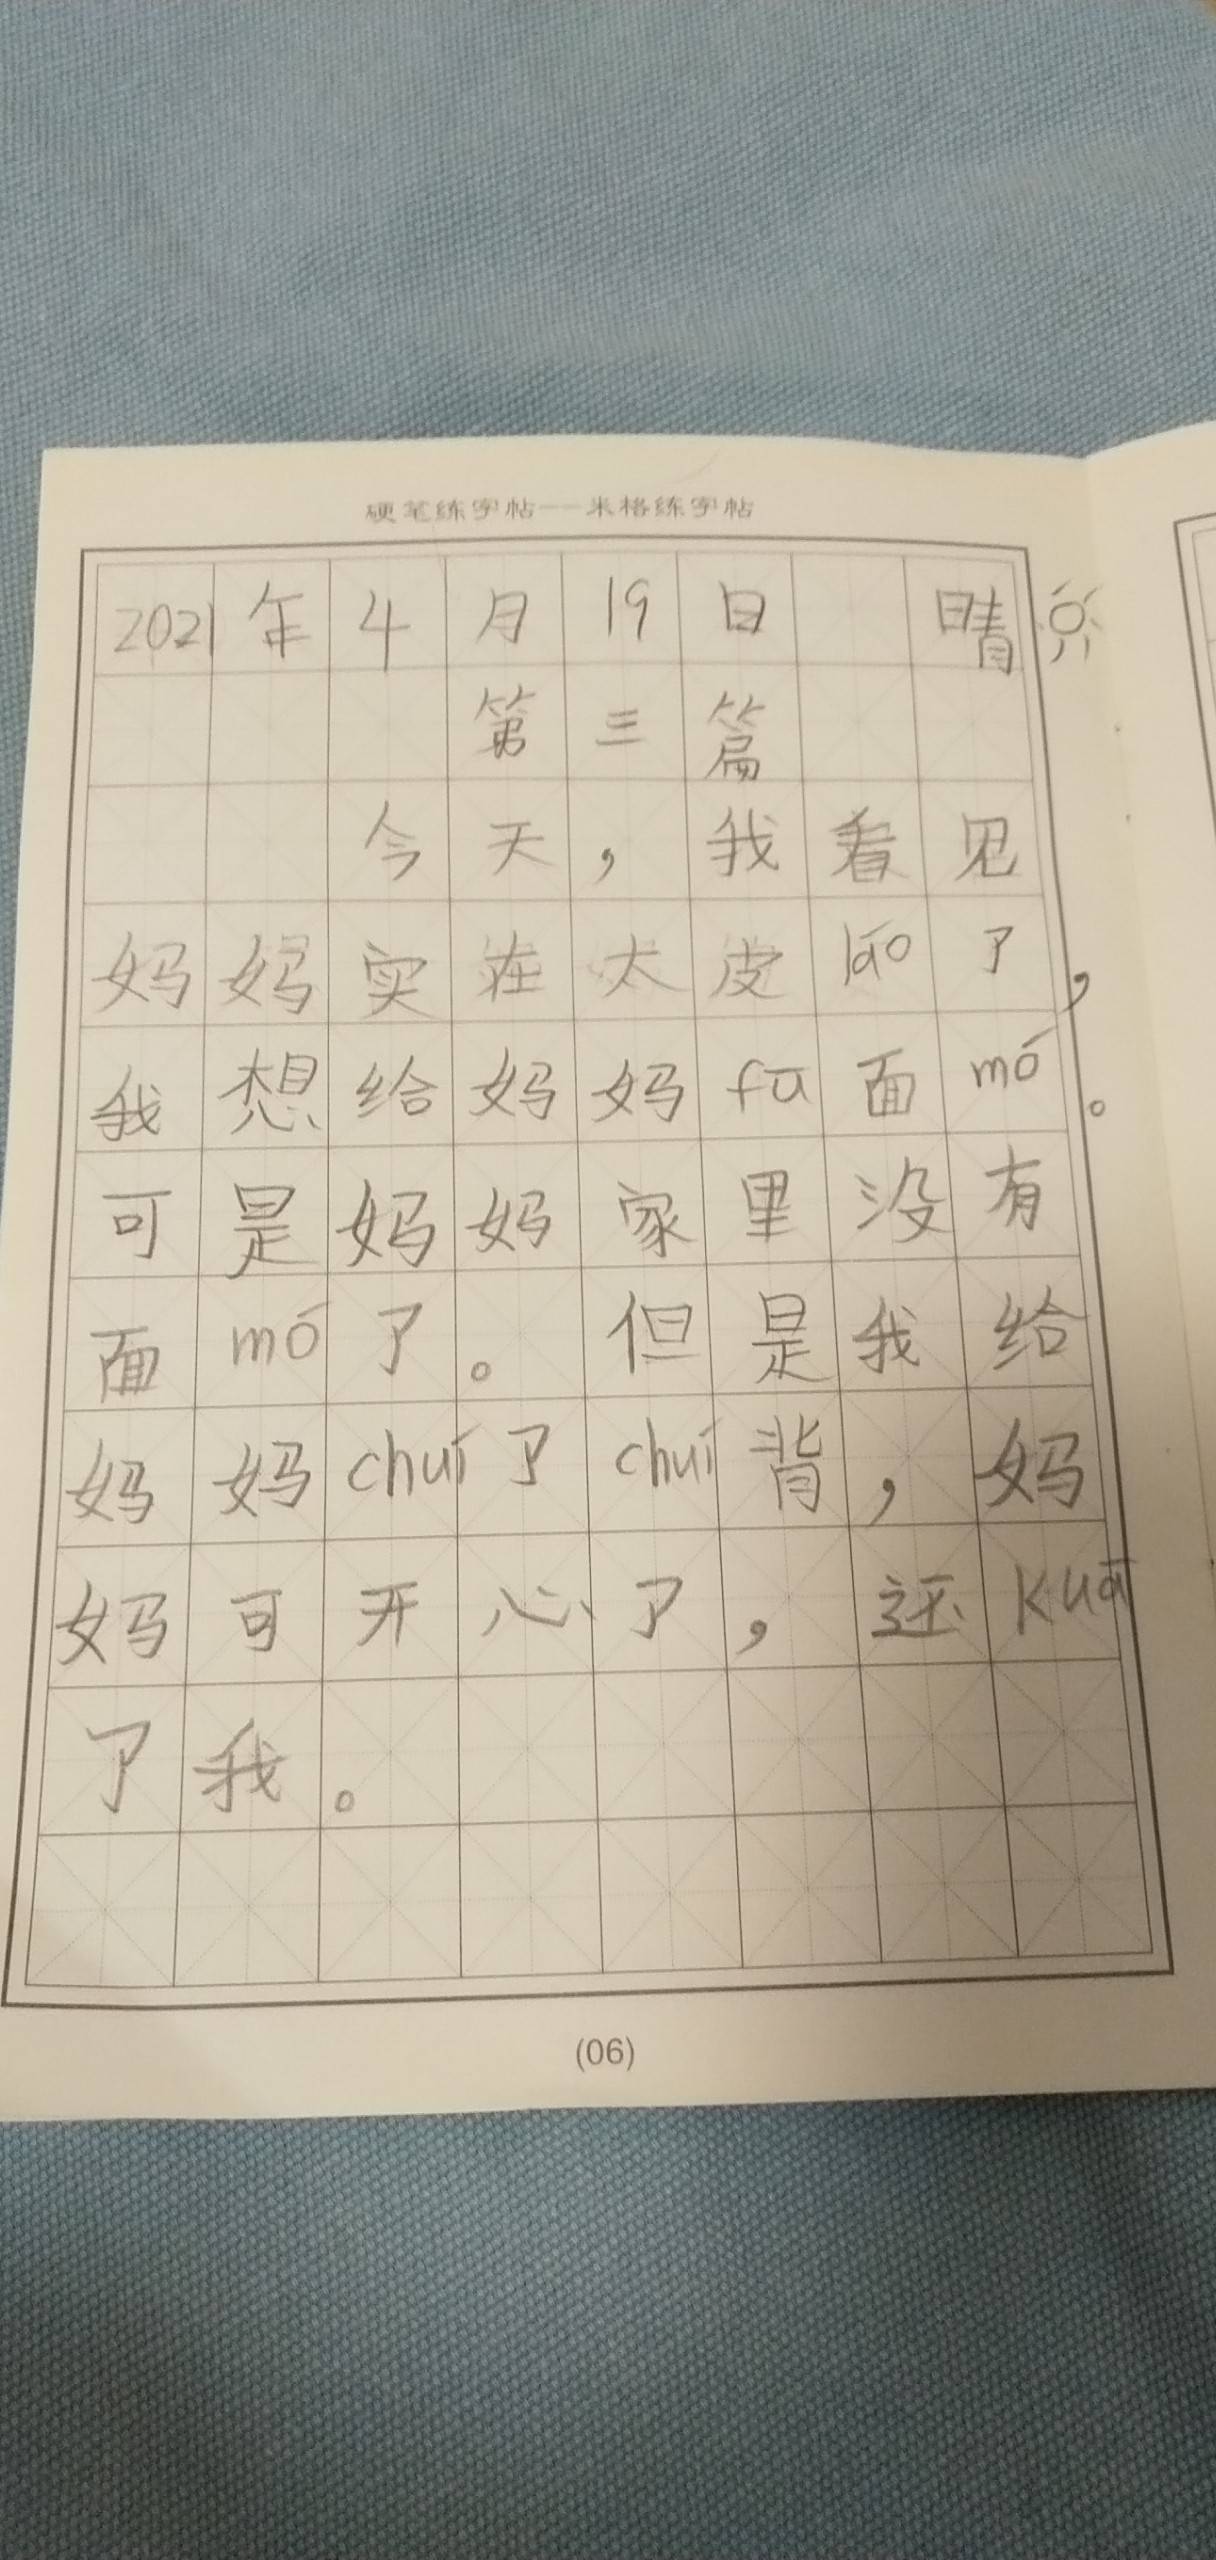 硬笔练字帖——米格练字帖
2021年4月19日 晴
第三篇
今天，我看见
妈妈实在太皮láo了，
我想给妈妈fū面mó。
可是妈妈家里没有
面mó了。但是我给
妈妈chuí了chuí背，妈
妈可开心了，还Kuā
了我。
(06)